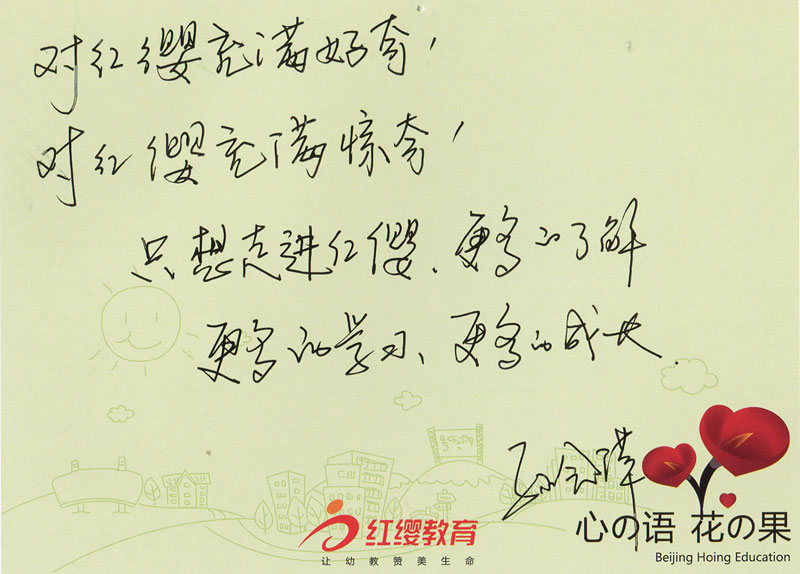 对红缨充满好奇，
对红缨充满惊奇，
只想走进红缨、更多的了解
更多的学习、更多的成长
红缨教育
让幼教赞美生命
心の语 花の果
Beijing Hoing Education